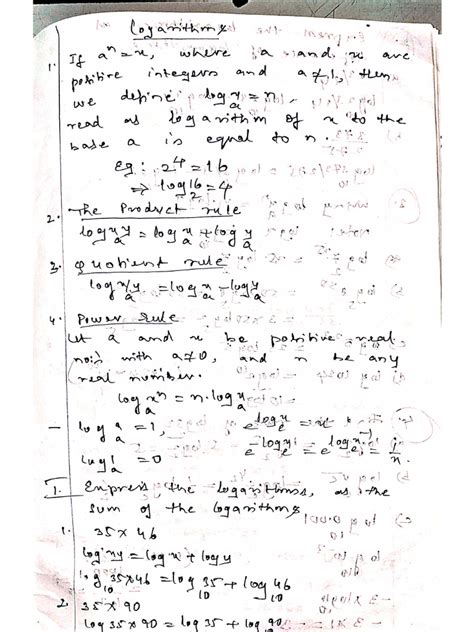 Logarithms
1. If aⁿ = x, where a and x are
positive integers and a ≠ 1, then
we define logₐx = n.
read as logarithm of x to the
base a is equal to n.
eg: 2⁴ = 16
⇒ log₂16 = 4
2. The Product rule
logₐxy = logₐx + logₐy
3. Quotient rule
logₐx/y = logₐx - logₐy
4. Power rule
Let a and x be positive real
nois with a ≠ 0, and n be any
real number.
logₐxⁿ = n.logₐx
- logₐa = 1,
logₐ1 = 0
I. Express the logarithms, as the
sum of the logarithms
1. 35 × 46
log xy = log x + log y
log₁₀35×46 = log₁₀35 + log₁₀46
2. 35 × 90
log 35 × 90 = log 35 + log 90